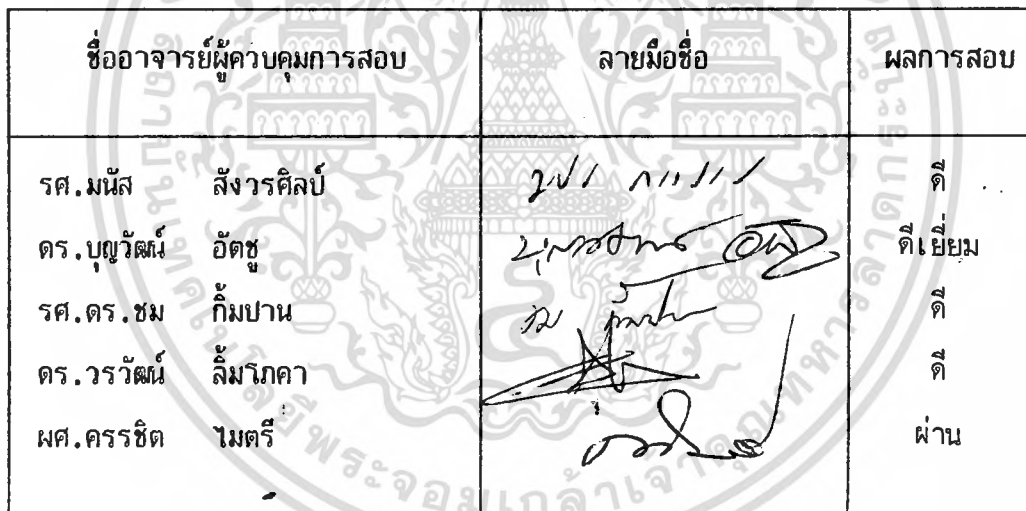 ชื่ออาจารย์ผู้ควบคุมการสอบ ลายมือชื่อ ผลการสอบ
รศ.มนัส สังวรศิลป์ ดี
ดร.บุญวัฒน์ อัตชู บุญวัฒน์ ดีเยี่ยม
รศ.ดร.ชม กิ้มปาน ชม กิ้มปาน ดี
ดร.วรวัฒน์ ลิ้มโภคา ดี
ผศ.ครรชิต ไมตรี ผ่าน